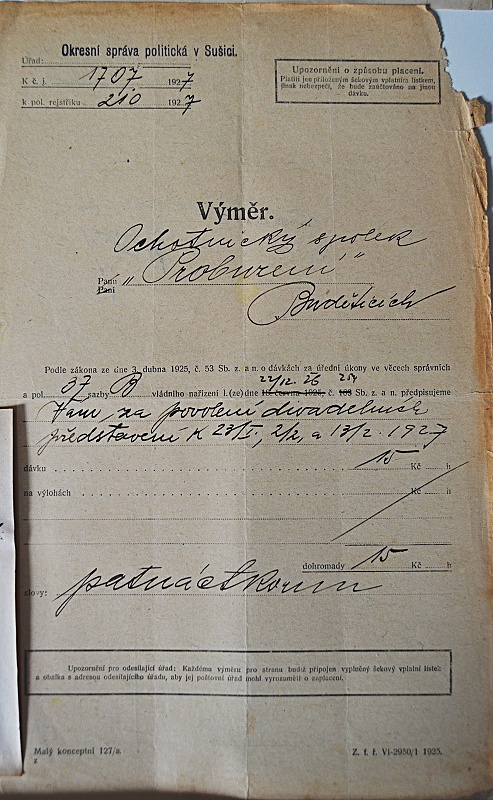 Okresní správa politická v Sušici.
Úřad:
K č. j. 1707 1927
k pol. rejstříku 210 1927
Upozornění o způsobu placení.
Platiti jen přiloženým šekovým vplatním lístkem,
jinak nebezpečí, že bude zaúčtováno na jinou
dávku.
Výměr.
Ochotnický spolek
Panu „Probuzení“
Paní
Buděticích
Podle zákona ze dne 3. dubna 1925, č. 53 Sb. z. a n. o dávkách za úřední úkony ve věcech správních
22/12. 26 254
a pol. 37 sazby B vládního nařízení l. (ze) dne č. Sb. z. a n. předpisujeme
Vám za povolení divadelních
představení k 23/I, 2/2, a 13/2. 1927
dávku 15 Kč h
na výlohách Kč h
dohromady 15 Kč h
slovy: patnáct korun
Upozornění pro odesílající úřad: Každému výměru pro stranu budiž připojen vyplněný šekový vplatní lístek
a obálka s adresou odesílajícího úřadu, aby jej poštovní úřad mohl vyrozuměti o zaplacení.
Malý konceptní 127/a. Z. t. ř. VI-2950/1 1925.
z